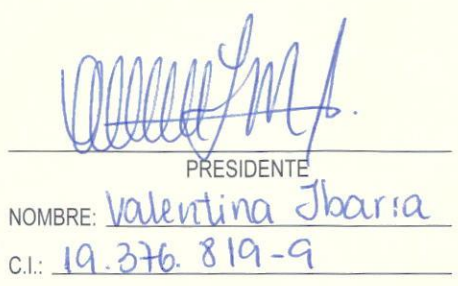 PRESIDENTE
NOMBRE: Valentina Ibarra
C.I.: 19.376.819-9